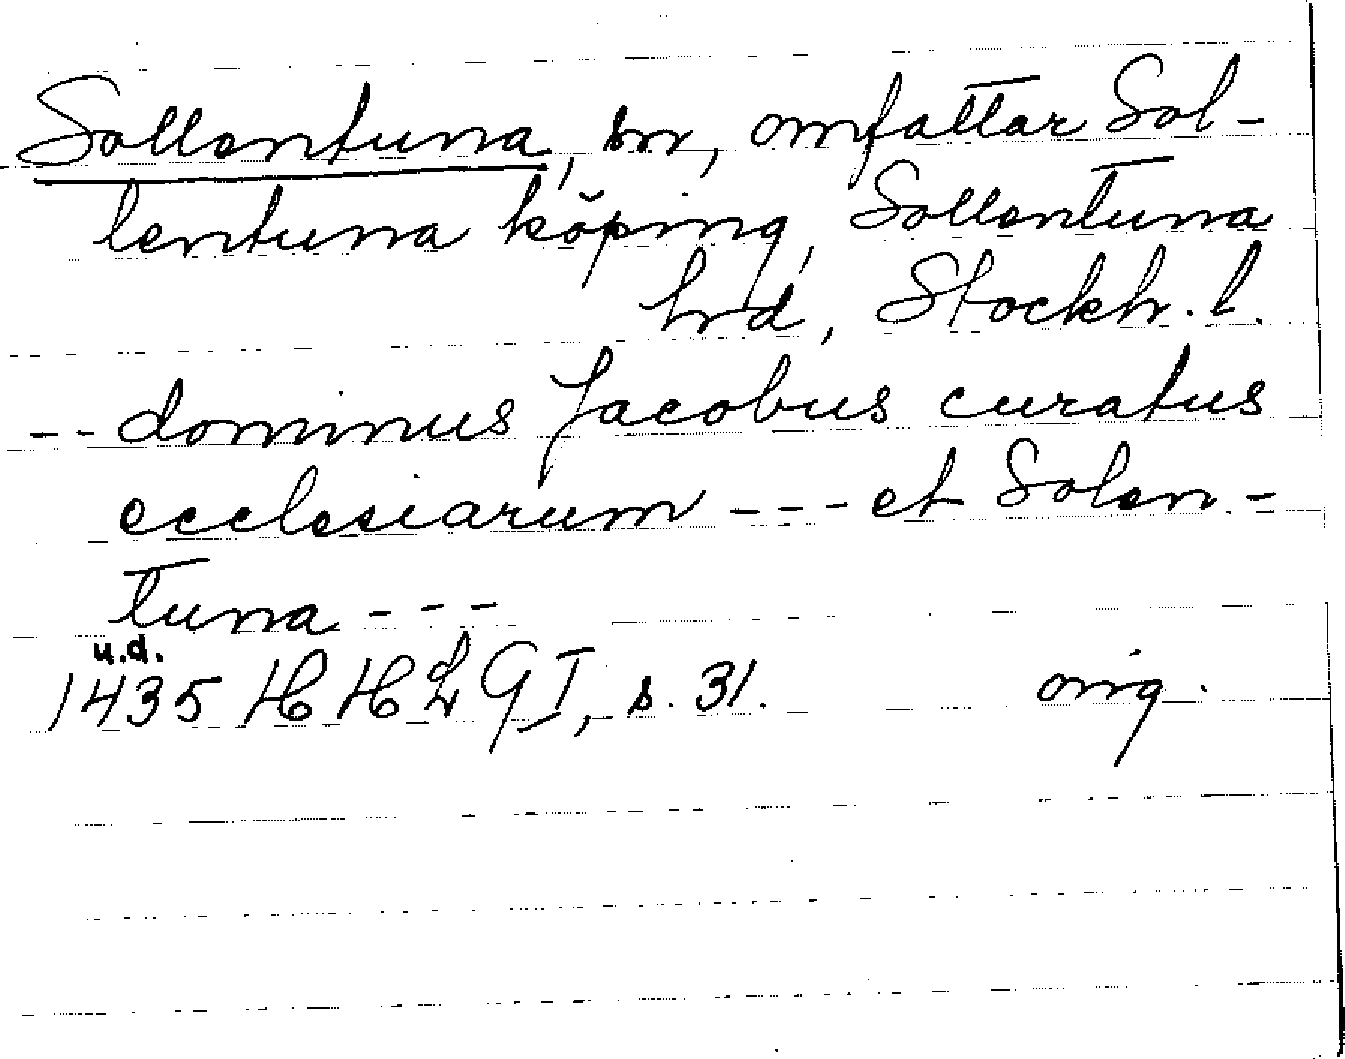 Sollentuna, sn, omfattar Sol-
lentuna köping, Sollentuna
hrd, Stockh. l.
-- dominus Jacobus curatus
ecclesiarum --- et Solen-
tuna ---
u.d.
1435 HHLG I, s. 31. orig.